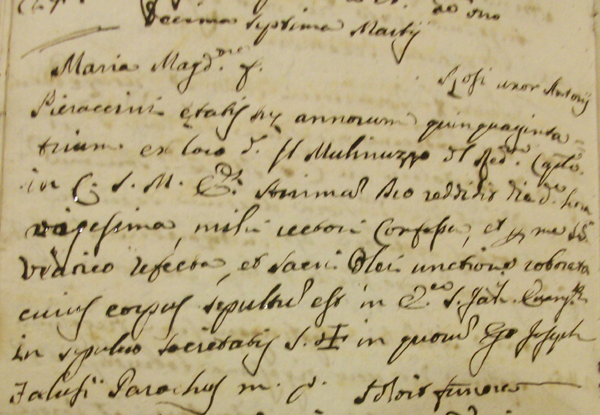 Decima septima Martij
Maria Magd.ne f. Rosi uxor Antonij
Pieraccini etatis suę annorum quinquaginta
trium ex loco d. Il Mulinuzzo
in C. S. M. E. Animam Deo reddidit die d. hora
vigesima, mihi rectori Confessa, et p me SS.
Viatico refecta, et Sacri Olei unctione roborata
cuius corpus sepultū est in S.
in sepulcro societatis S. in quorū Ego Joseph
Parochus m. p. Solvit funera